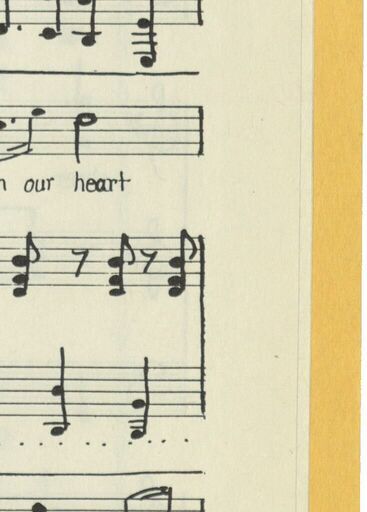 our heart